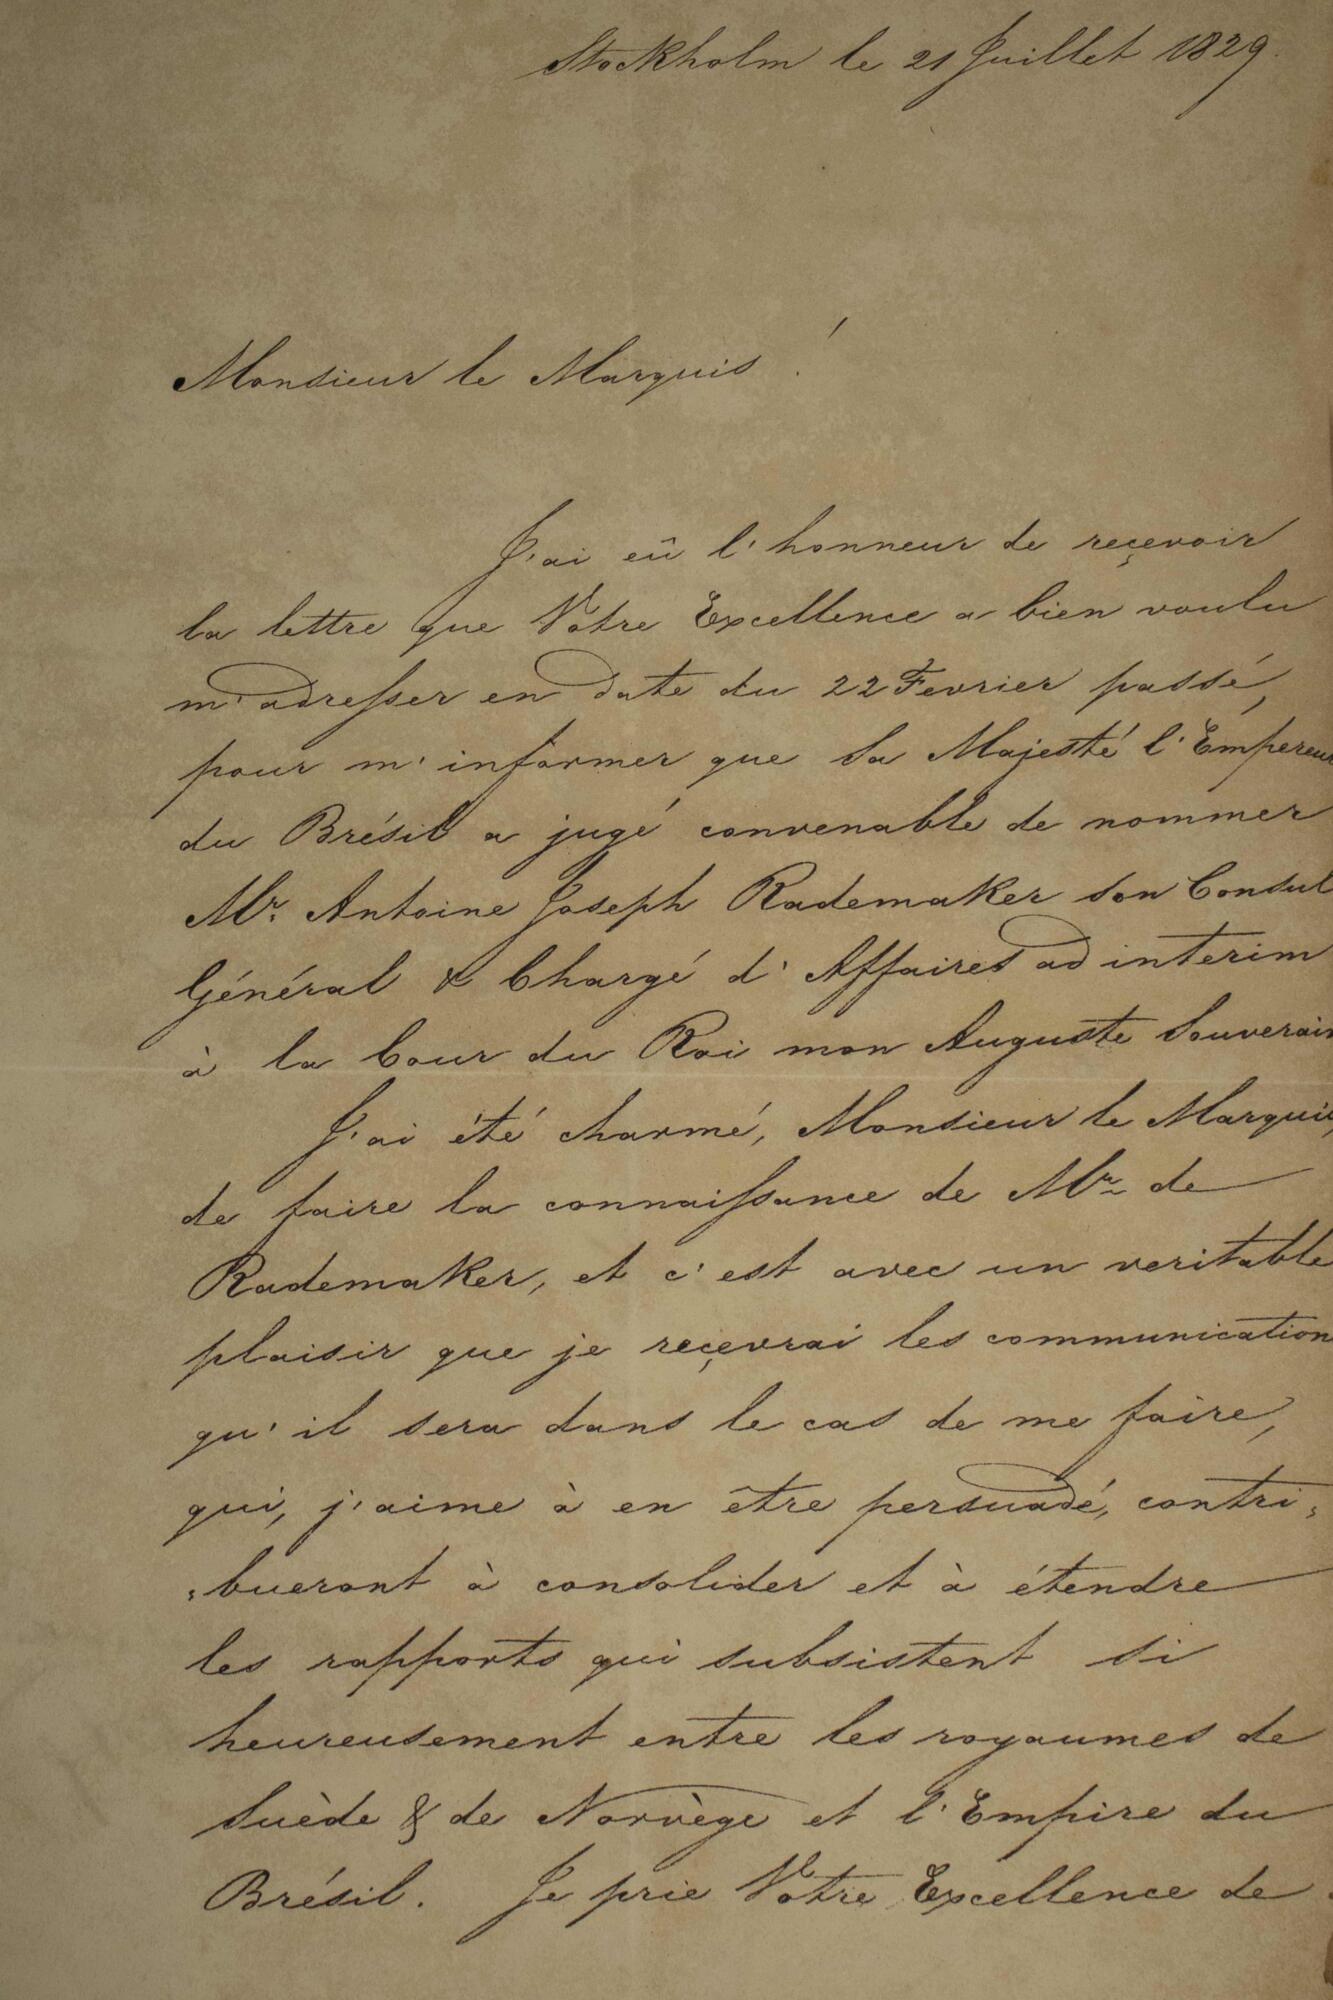 Stockholm le 21 Juillet 1829.
Monsieur le Marquis !
J'ai eû l'honneur de reçevoir
la lettre que Votre Excellence a bien voulu
m'adresser en date du 22 Fevrier passé,
pour m'informer que Sa Majesté l'Empereur
du Brésil a jugé convenable de nommer
Mr. Antoine Joseph Rademaker Son Consul
Général & Chargé d'Affaires ad interim
à la Cour du Roi mon Auguste Souverain
J'ai été charmé, Monsieur le Marquis,
de faire la connaissance de Mr. de
Rademaker, et c'est avec un veritable
plaisir que je reçevrai les communication
qu'il sera dans le cas de me faire,
qui, j'aime à en être persuadé, contri=
=bueront à consolider et à étendre
les rapports qui subsistent si
heureusement entre les royaumes de
Suède & de Norvège et l'Empire du
Brésil. Je prie Votre Excellence de